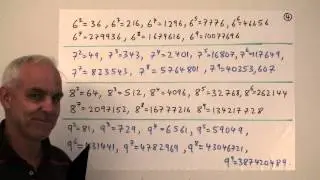 6²=36, 6³=216, 6⁴=1296, 6⁵=7776, 6⁶=46656
6⁷=279936, 6⁸=1679616, 6⁹=10077696
④
7²=49, 7³=343, 7⁴=2401, 7⁵=16807, 7⁶=117649,
7⁷=823543, 7⁸=5764801, 7⁹=40353,607
8²=64, 8³=512, 8⁴=4096, 8⁵=32768, 8⁶=262144
8⁷=2097152, 8⁸=16777216, 8⁹=134217728
9²=81, 9³=729, 9⁴=6561, 9⁵=59049,
9⁶=531441, 9⁷=4782969, 9⁸=43046721,
9⁹=387420489.